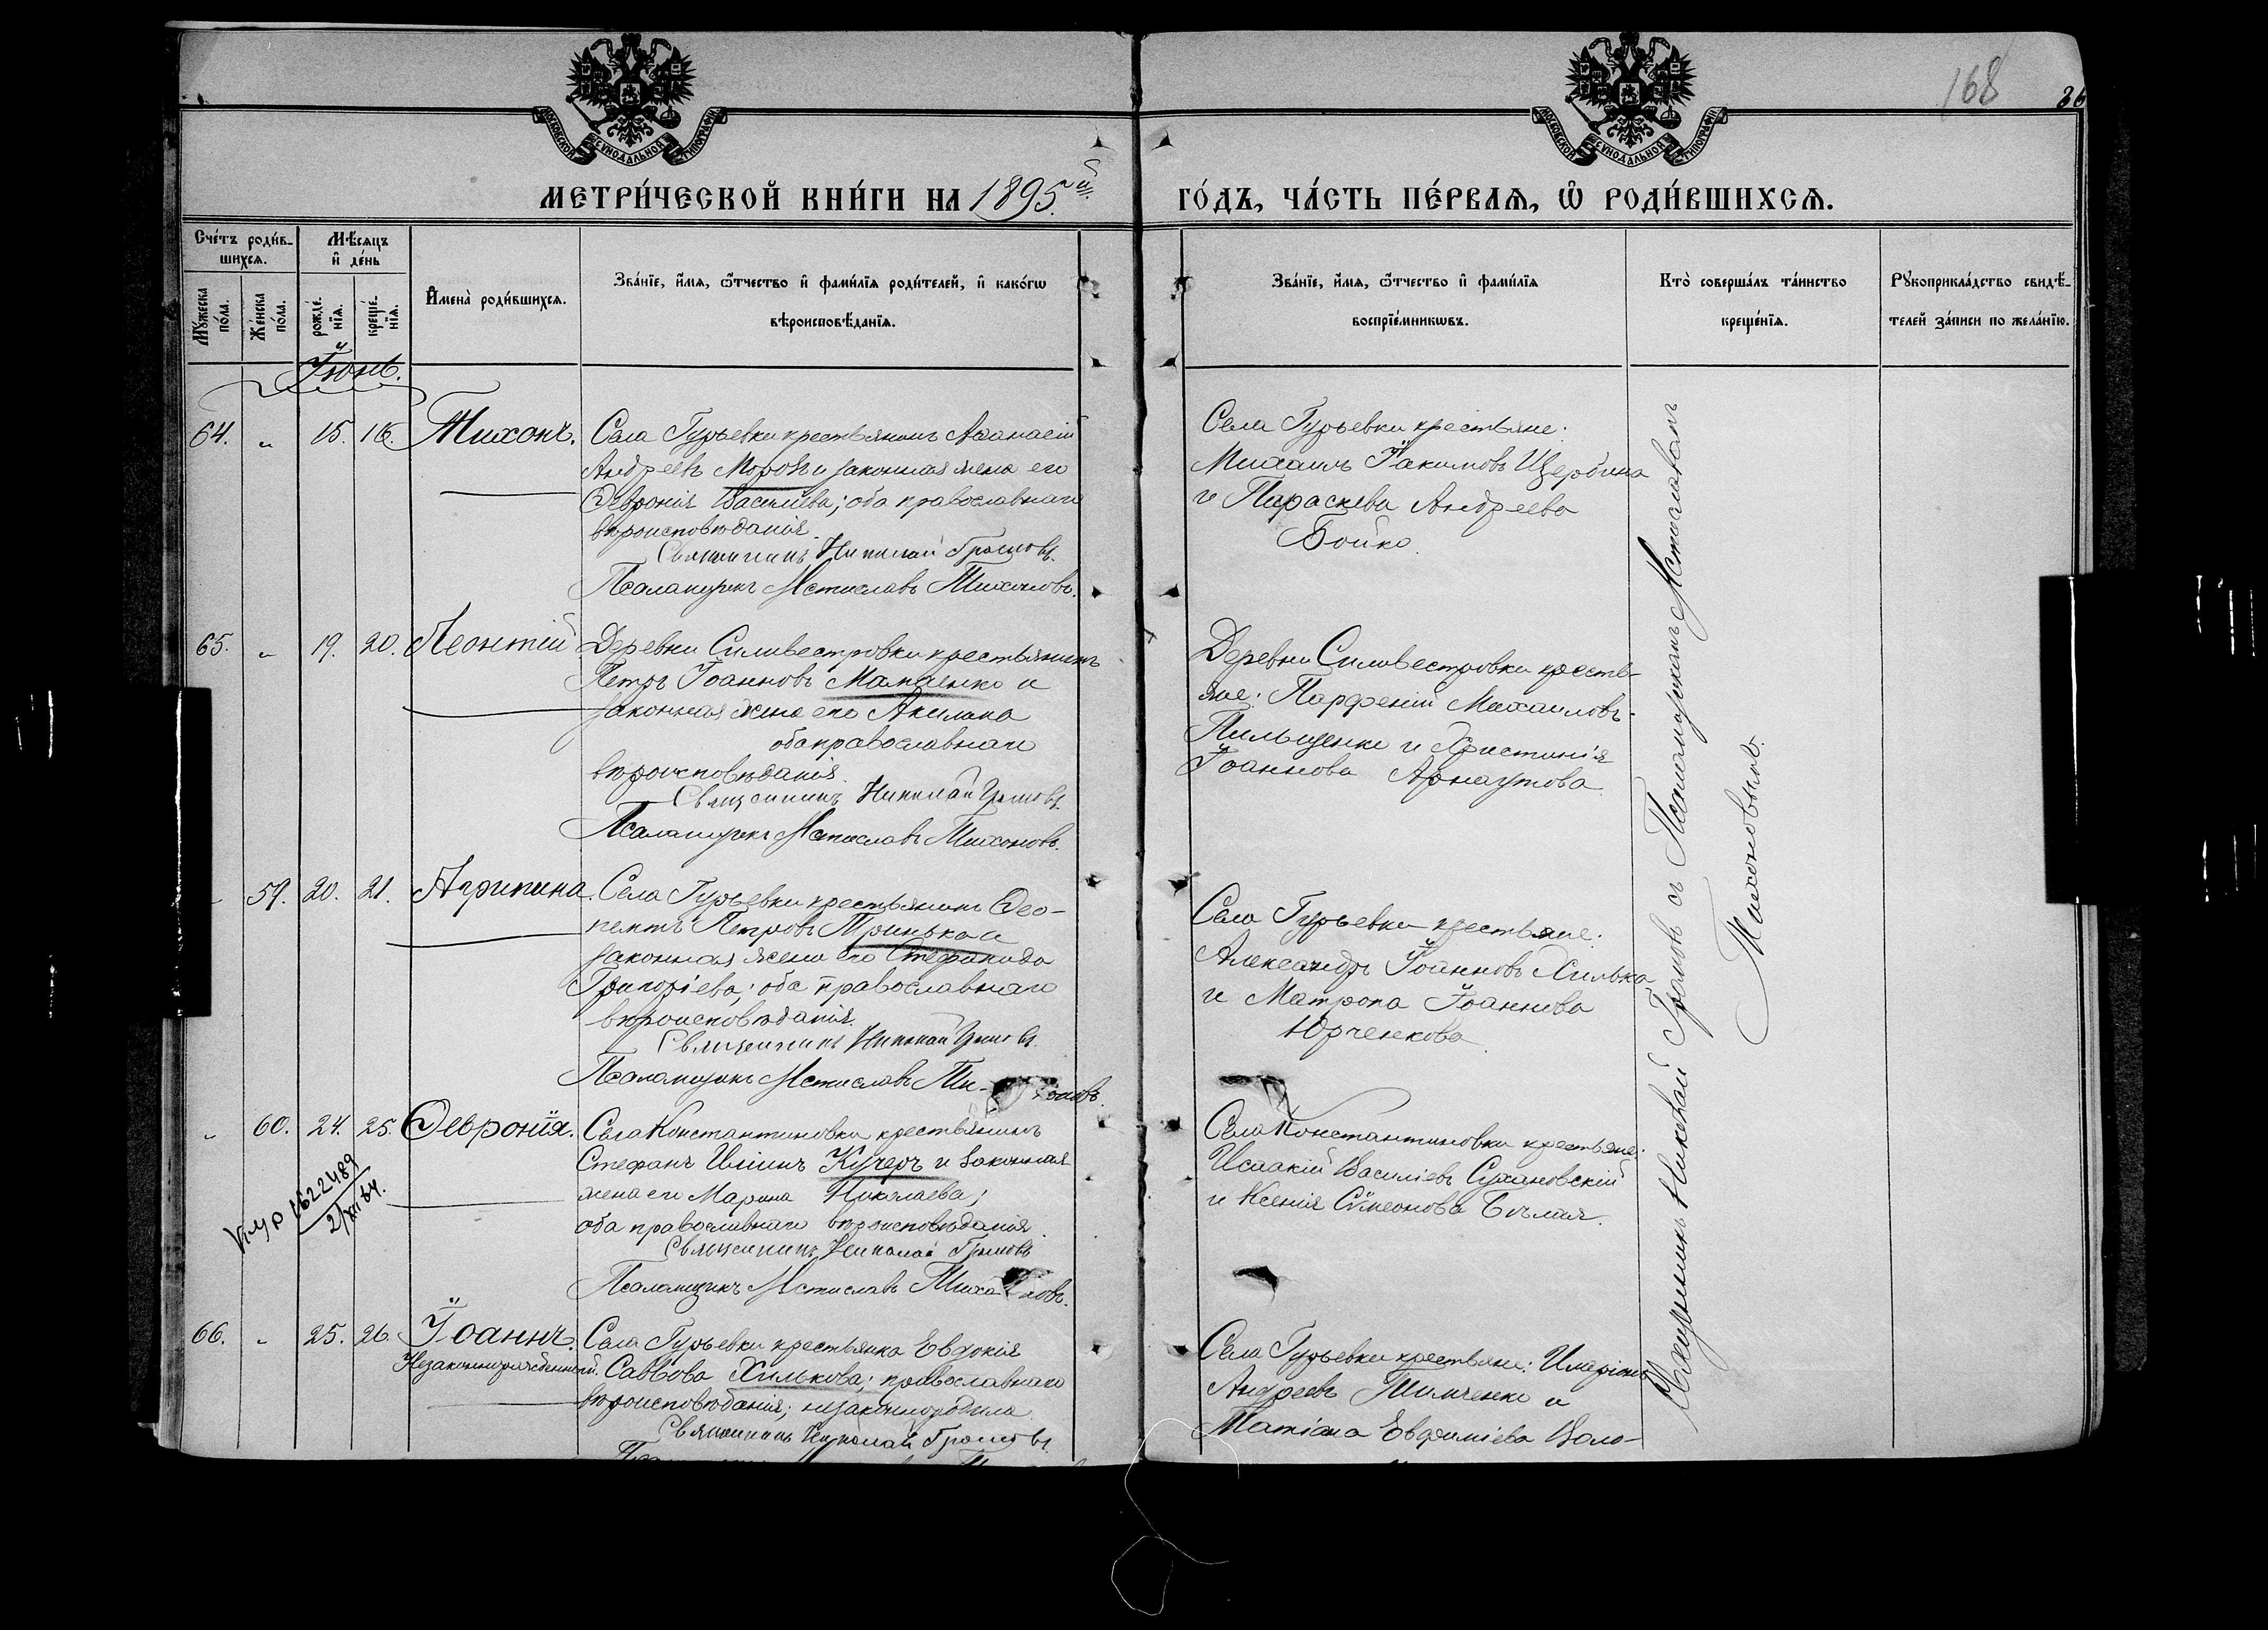 168
36
МОСКОВСКОЙ СѴНОДАЛЬНОЙ ТИПОГРАФІИ
МОСКОВСКОЙ СѴНОДАЛЬНОЙ ТИПОГРАФІИ
МЕТРИ́ЧЕСКОЙ КНИ́ГИ НА 1895й ГО́ДЪ, ЧА́СТЬ ПЕ́РВАѦ, Ѿ РОДИ́ВШИХСѦ.
Сче́тъ роди́в-
шихсѧ.
Мѣ́сѧцъ
и҆ де́нь
Мꙋ́жеска
по́ла.
Же́нска
по́ла.
рожде́-
нїѧ.
креще́-
нїѧ.
И҆мена̀ роди́вшихсѧ.
Зва́нїе, и҆́мѧ, ѻ҆́тчество и҆ фами́лїѧ роди́телей, и҆ како́гѡ
вѣроисповѣ́данїѧ.
Зва́нїе, и҆́мѧ, ѻ҆́тчество и҆ фами́лїѧ
воспрїе́мникѡвъ.
Кто̀ соверша́лъ та́инство
креще́нїѧ.
Рꙋкоприкла́дство свидѣ́-
телей за́писи по жела́нїю.
Іюнь.
64. " 15. 16. Тихонъ.
Села Гурьевки крестьянинъ Аѳанасій
Андреевъ Морозъ и законная жена его
Ѳеѵронія Василіева; оба православнаго
вѣроисповѣданія.
Священникъ Николай Громовъ.
Псаломщикъ Мстиславъ Тихоновъ.
Села Гурьевки крестьяне:
Михаилъ Іакимовъ Щербина
и Параскева Андреева
Бойко.
65. " 19. 20. Леонтій
Деревни Силивестровки крестьянинъ
Петръ Іоанновъ Матіенко и
законная жена его Акилина
оба православнаго
вѣроисповѣданія.
Священникъ Николай Громовъ
Псаломщикъ Мстиславъ Тихоновъ.
Деревни Силивестровки кресть-
яне: Парфеній Михаиловъ
Пильщенко и Христинія
Іоаннова Арнаутова.
" 59. 20. 21. Агрипина.
Села Гурьевки крестьянинъ Ѳео-
пемптъ Петровъ Тринька и
законная жена его Стефанида
Григоріева; оба православнаго
вѣроисповѣданія.
Священникъ Николай Громовъ.
Псаломщикъ Мстиславъ Ти- хоновъ.
Села Гурьевки крестьяне:
Александръ Іоанновъ Хилько
и Матрона Іоаннова
Юрченкова.
" 60. 24. 25. Ѳеѵронія.
Села Константиновки крестьянинъ
Стефанъ Иліинъ Кучеръ и законная
жена его Марина Николаева;
оба православнаго вѣроисповѣданія.
Священникъ Николай Громовъ
Псаломщикъ Мстиславъ Тихо новъ.
1622489
2/XII 64.
Села Константиновки крестьяне:
Исаакій Василіевъ Сухановскій
и Ксенія Сѵмеонова Бѣлая.
66. " 25. 26. Іоаннъ.
Незаконнорожденный.
Села Гурьевки крестьянка Евдокія
Саввова Хилькова; православнаго
вѣроисповѣданія; незаконнорожила
Священникъ Николай Громовъ.
Села Гурьевки крестьяне: Иларіонъ
Андреевъ Тимченко и
Татіана Евфиміева Воло-
Священникъ Николай Громовъ съ Псаломщикомъ Мстиславомъ
Тихоновымъ.